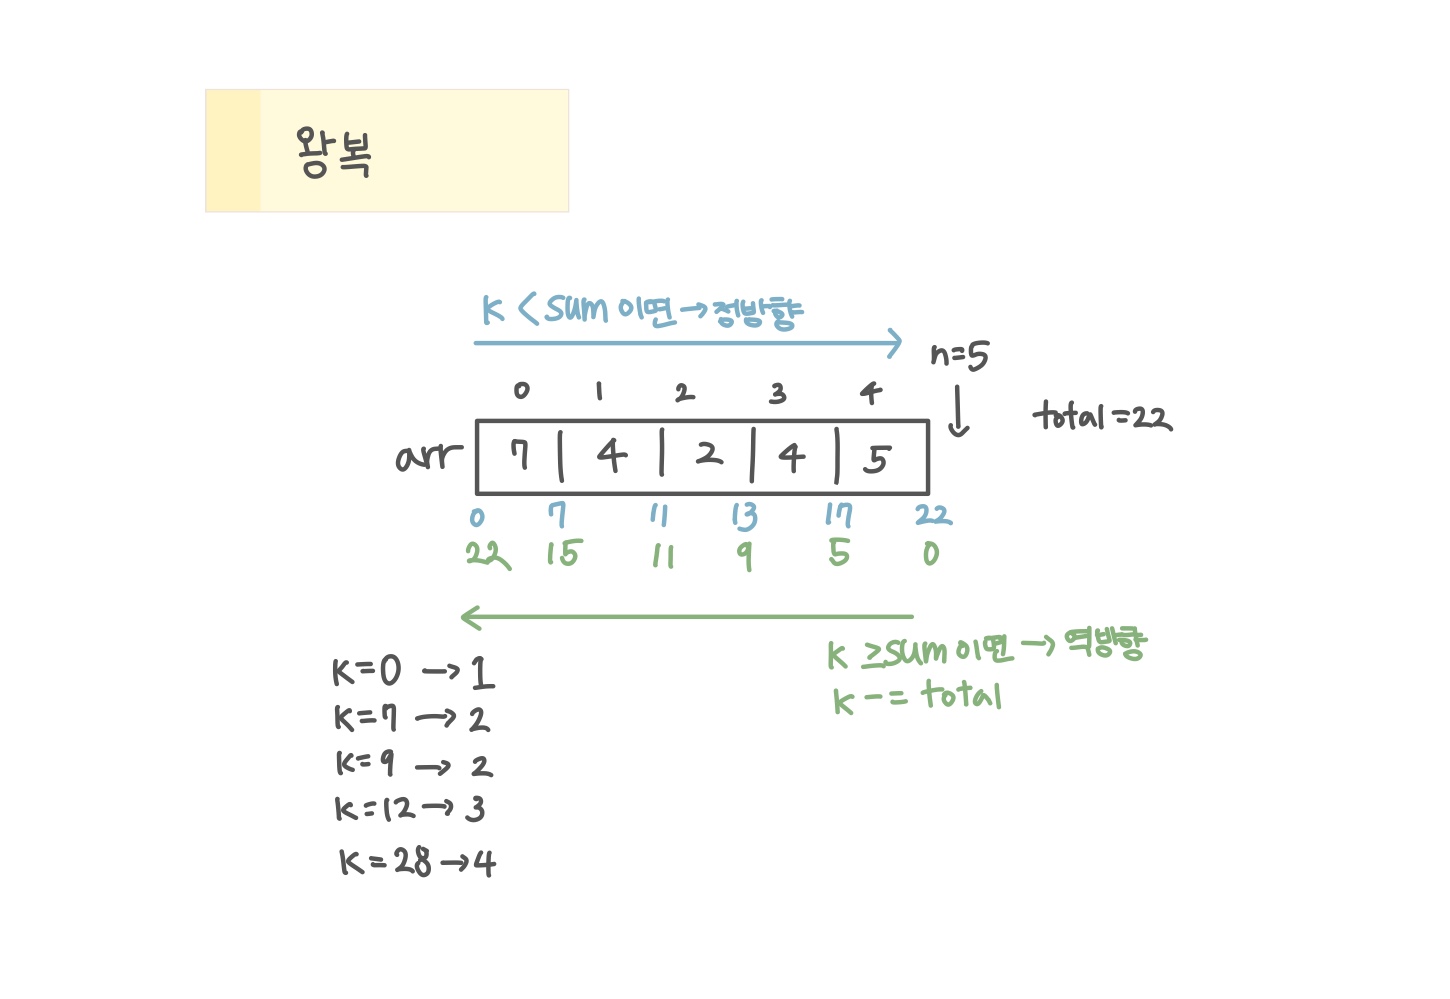 왕복
K < sum 이면 → 정방향
n=5
0 1 2 3 4
total = 22
arr 7 4 2 4 5
0 7 11 13 17 22
22 15 11 9 5 0
K ≥ sum 이면 → 역방향
K -= total
K=0 → 1
K=7 → 2
K=9 → 2
K=12 → 3
K=28 → 4